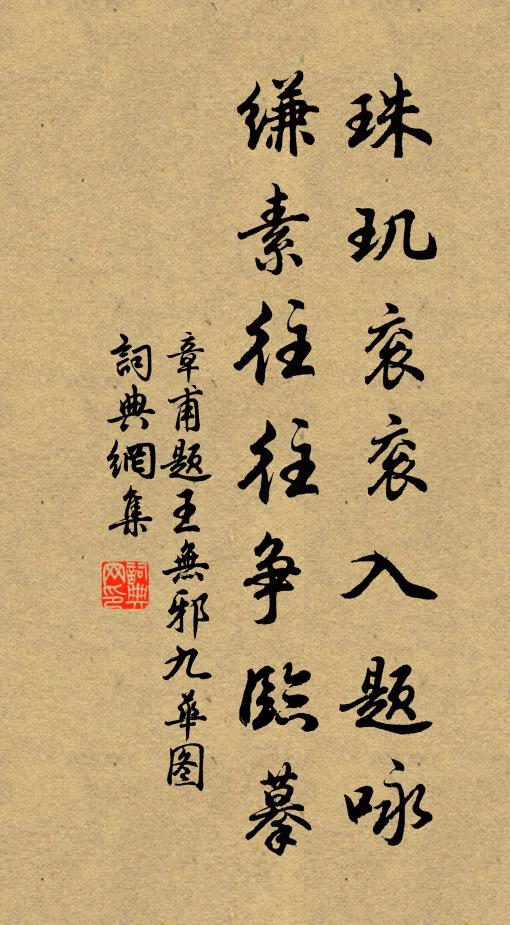 珠玑衮衮入题咏
缣素往往争临摹
章甫题王無邪九华图
詞典網集
詞典网印